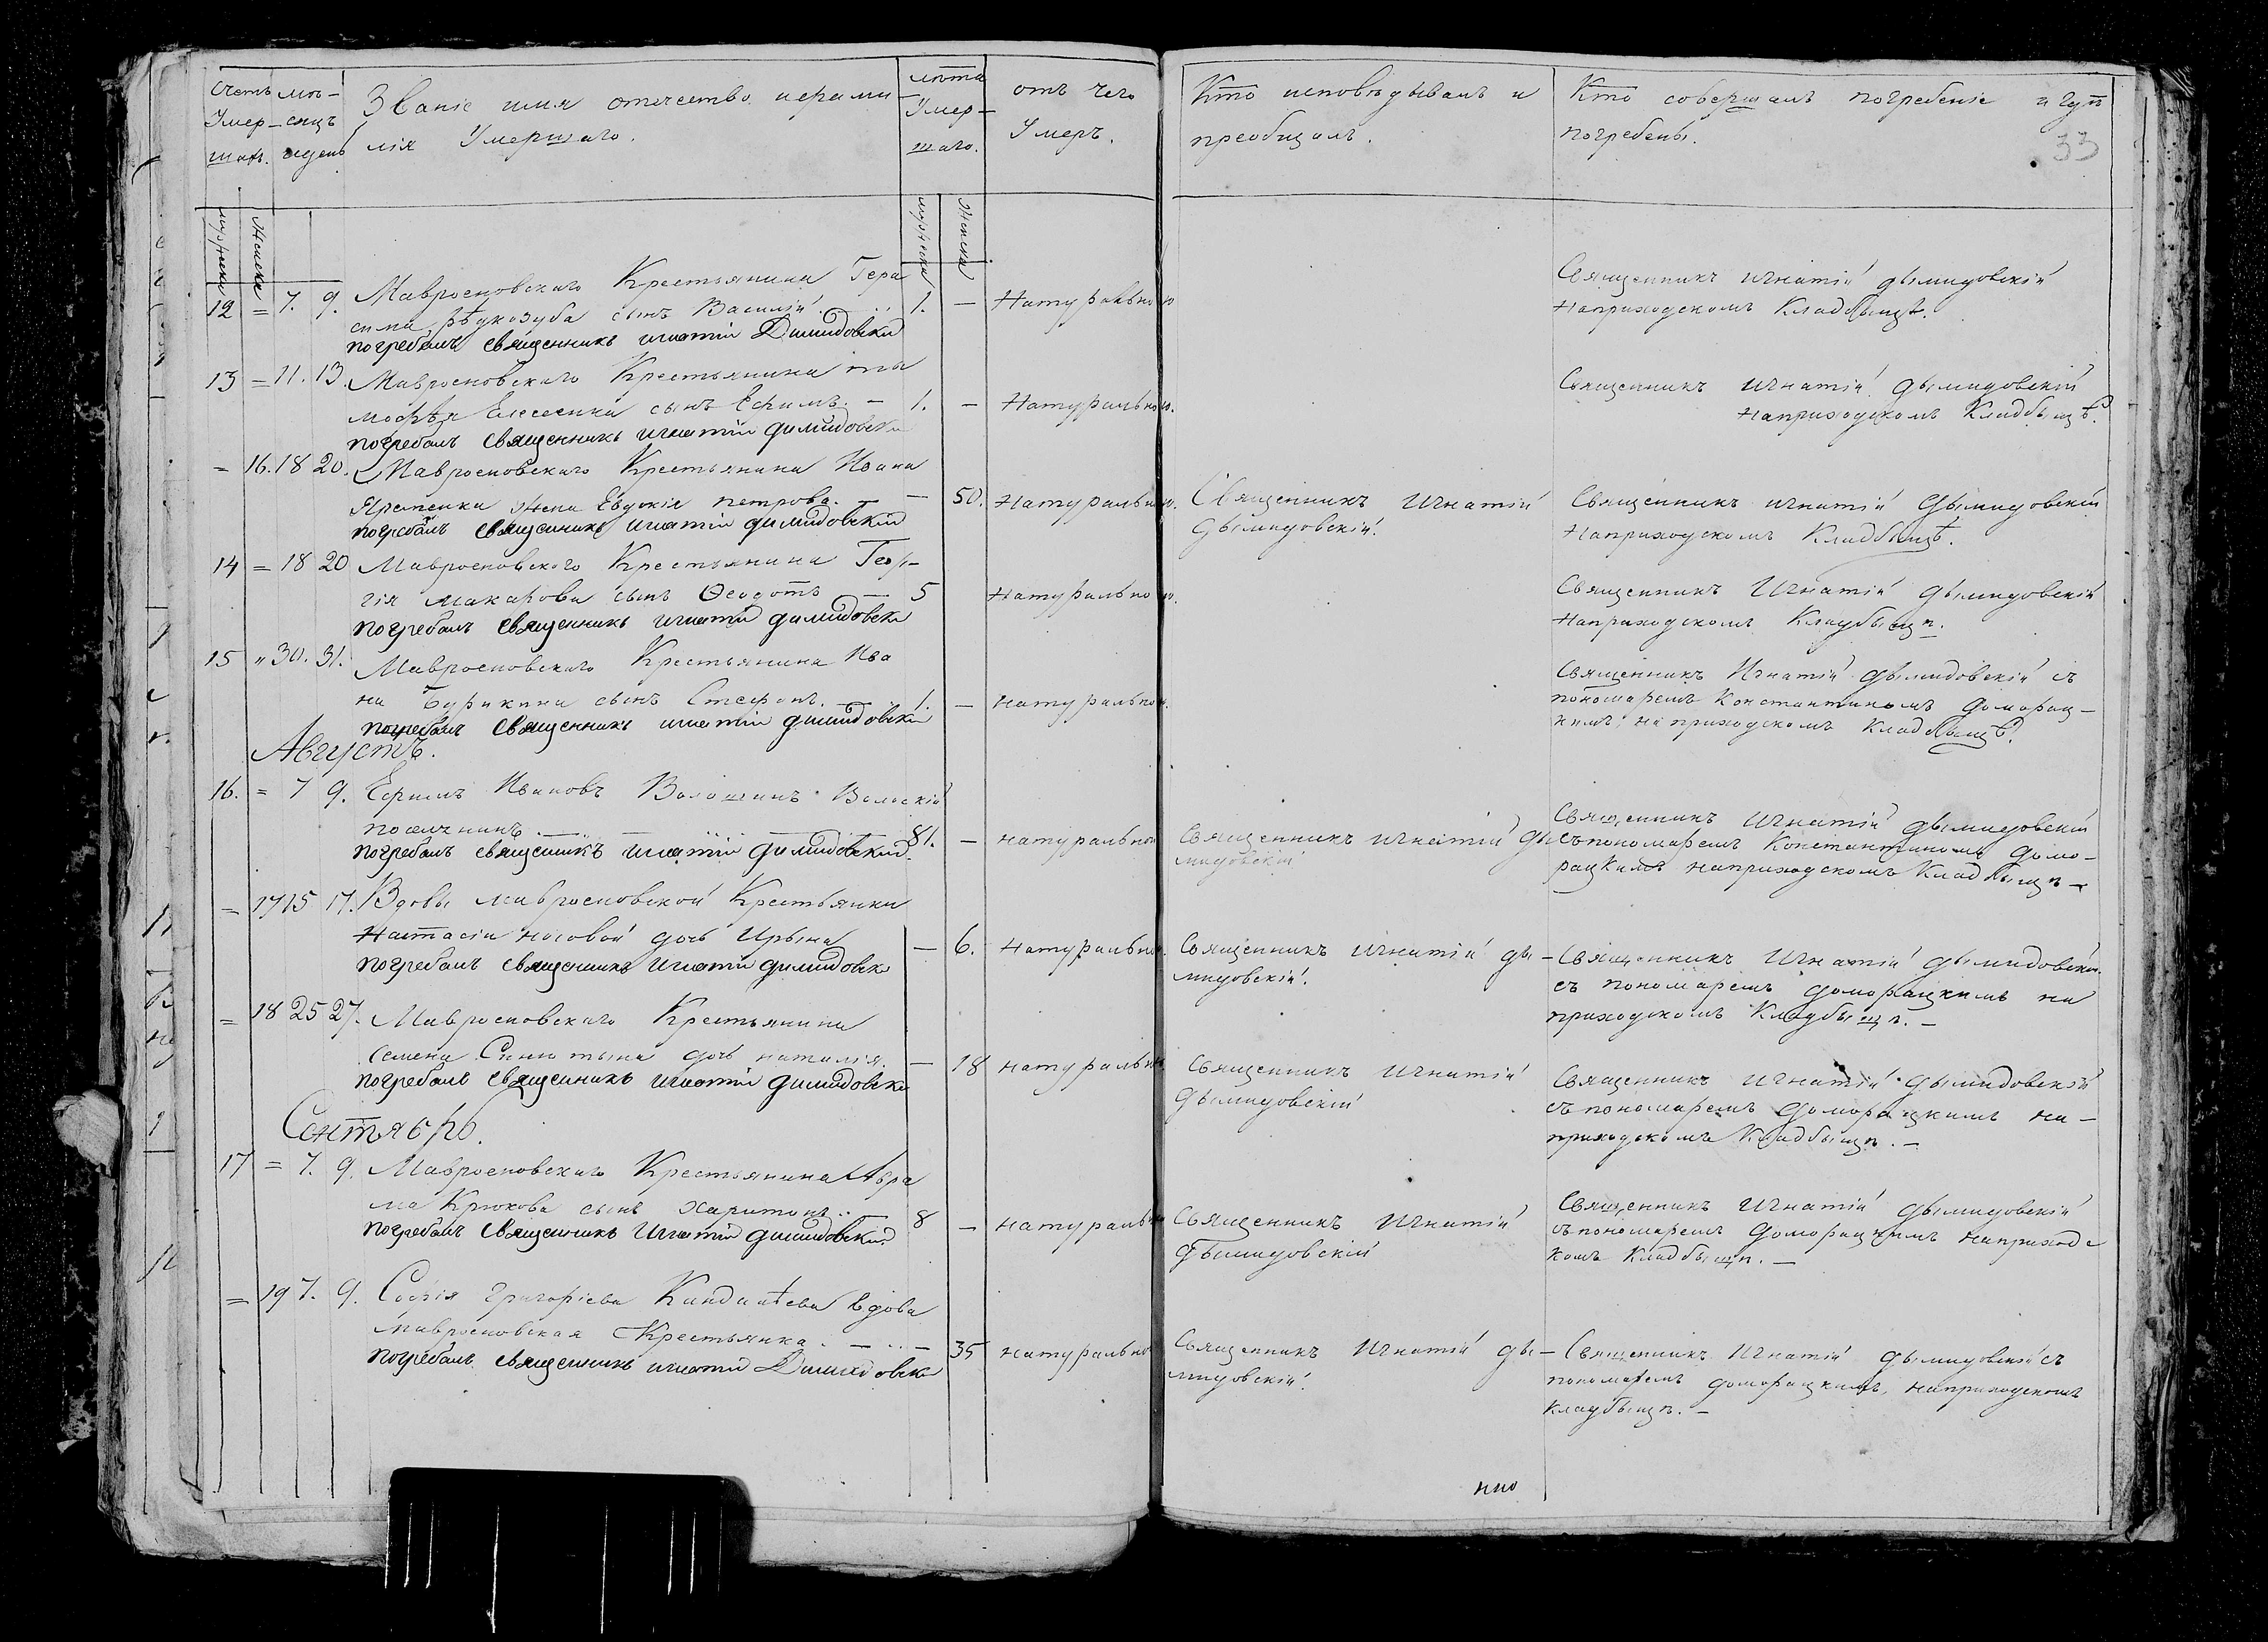 Счетъ
Умер-
шихъ.
мѣ-
сяцъ
и день
Званіе имя отечество и фами
лія Умершаго.
лѣта
Умер-
шаго.
отъ чего
Умеръ.
Кто исповѣдывалъ и
преобщалъ.
Кто совершалъ погребеніе и гдѣ
погребены.
33
мужеска
Женска
мужеска
Женска
12 = 7. 9. Мавросновскаго Крестьянина Гера
сима сынъ Василій. 1. — Натурально
погребалъ священникъ игнатій Димидовски
Священникъ игнатій дымидовскій
наприходскомъ Кладбыщѣ.
13 = 11. 13. Мавросновскаго Крестьянина
Елесеенка сынъ Ефимъ. — 1. — Натурально.
погребалъ священникъ игнатій димидовски
Священникъ игнатій дымидовскій
наприходскомъ Кладбыщѣ.
= 16. 18 20. Мавросновскаго Крестьянина Ивана
Яременка жена Евдокія петрова. — — 50. Натурально.
погребалъ священникъ игнатій димидовскій
Священникъ Игнатій
дымидовскій.
Священникъ игнатій дымидовскій
Наприходскомъ Кладбыщѣ.
14 = 18 20 Мавросновского Крестьянина Геор-
гія Макарова сынъ Ѳеодотъ — 5 Натурально.
погребалъ священникъ игнатій димидовски
Священникъ Игнатій дымидовскій
наприходскомъ Кладбыщѣ.
15 " 30. 31. Мавросновскаго Крестьянина Ива
на Бурикина сынъ Стефанъ. — 1. — натурально.
погребалъ священникъ игнатій димидовски
Священникъ Игнатій дымидовскій съ
пономаремъ Константиномъ домарац-
кимъ, на приходскомъ Кладбыщѣ.
Августъ.
16. = 7 9. Ефимъ Ивановъ Волошинъ Волоскій
81. — натурально
погребалъ священникъ игнатій димидовский.
Священникъ игнатій ды
мидовскій
Священникъ Игнатій дымидовскій
съ пономаремъ Константиномъ домо-
рацкимъ наприходскомъ Кладбыщѣ —
= 17 15 17. Вдовы мавросновской Крестьянки
Настасіи носовой дочь Ирына — 6. Натурально.
погребалъ священникъ игнатій димидовск
Священникъ Игнатій ды-
мидовскій.
Священникъ Игнатій дымидовскій.
съ пономаремъ доморацкимъ на
приходскомъ Кладбыщѣ. —
= 18 25 27. Мавросновскаго Крестьянина
Семена дочь наталія. — 18 натурально
погребалъ священникъ игнатій димидовски
Священникъ Игнатій
дымидовскій
Священникъ игнатій дымидовскій
съ пономаремъ доморацкимъ на-
приходскомъ Кладбыщѣ. —
Сентябрь.
17 = 7. 9. Мавросновскаго Крестьянина Авра
ма Крюкова сынъ харитонъ. — 8 — натурально
погребалъ священникъ Игнатій димидовский
Священникъ Игнатій
дымидовскій
Священникъ Игнатій дымидовскій
съ пономаремъ доморацкимъ наприходс
комъ Кладбыщѣ. —
= 19 7. 9. Софія Григоріева вдова
мавросновская Крестьянка. — — 35 натурально
погребалъ священникъ игнатій Димидовски
Священникъ Игнатій ды-
мидовскій.
Священникъ Игнатій дымидовскій съ
пономаремъ доморацкимъ, наприходскомъ
Кладбыщѣ. —